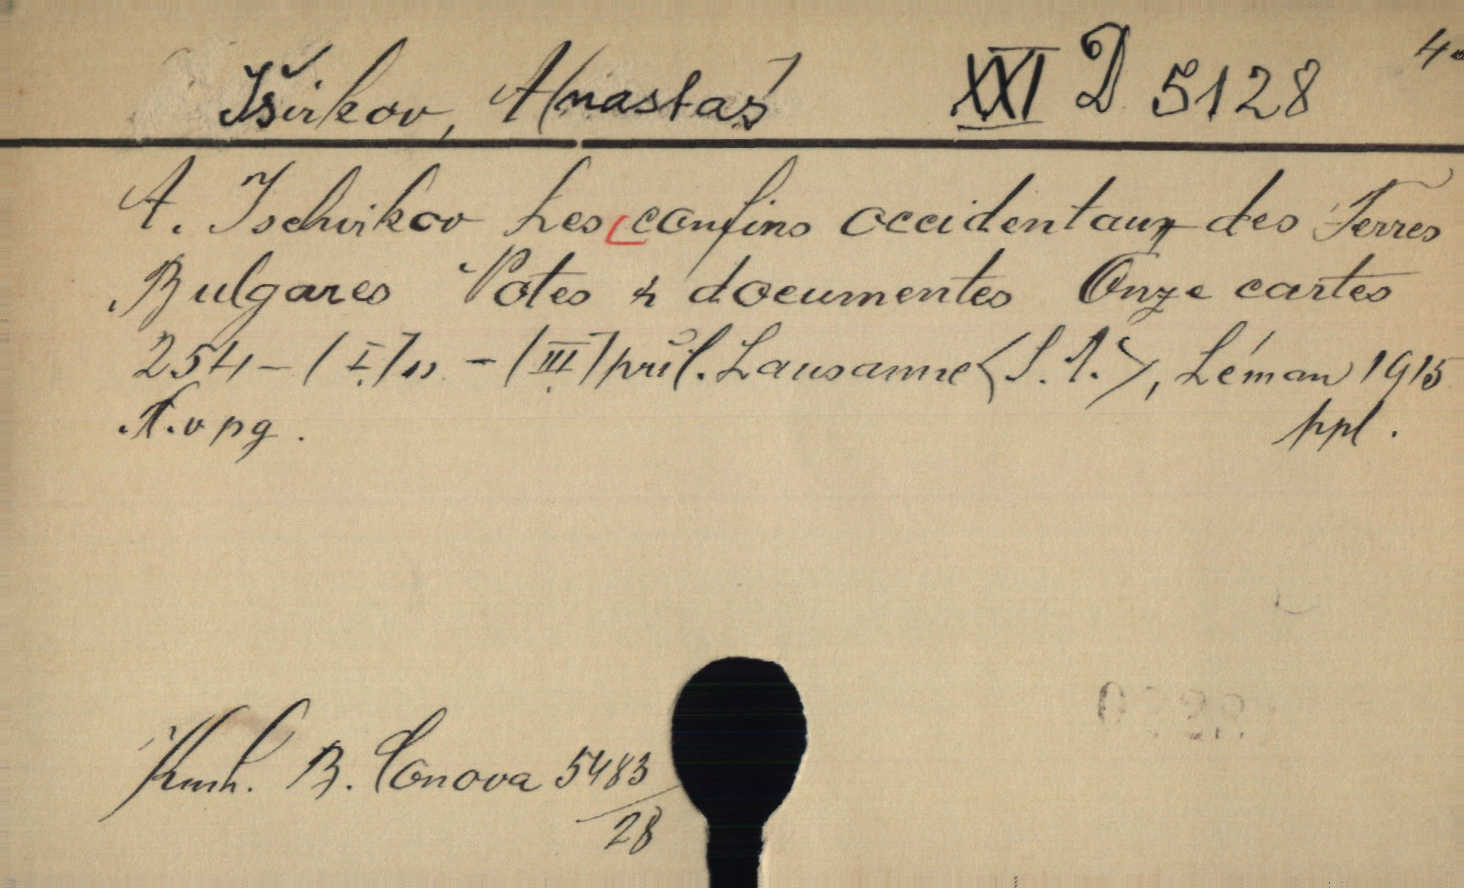 Iširkov, Anastas XXI D 5128 4°
A. Ischirkov Les confins occidentaux des Terres
Bulgares Notes & documentes Onze cartes
254 - (I) n - (III) příl. Lausanne <S. A.>, Léman 1915
8. v pg. ppl.
Knih. B. Conova 5483
28